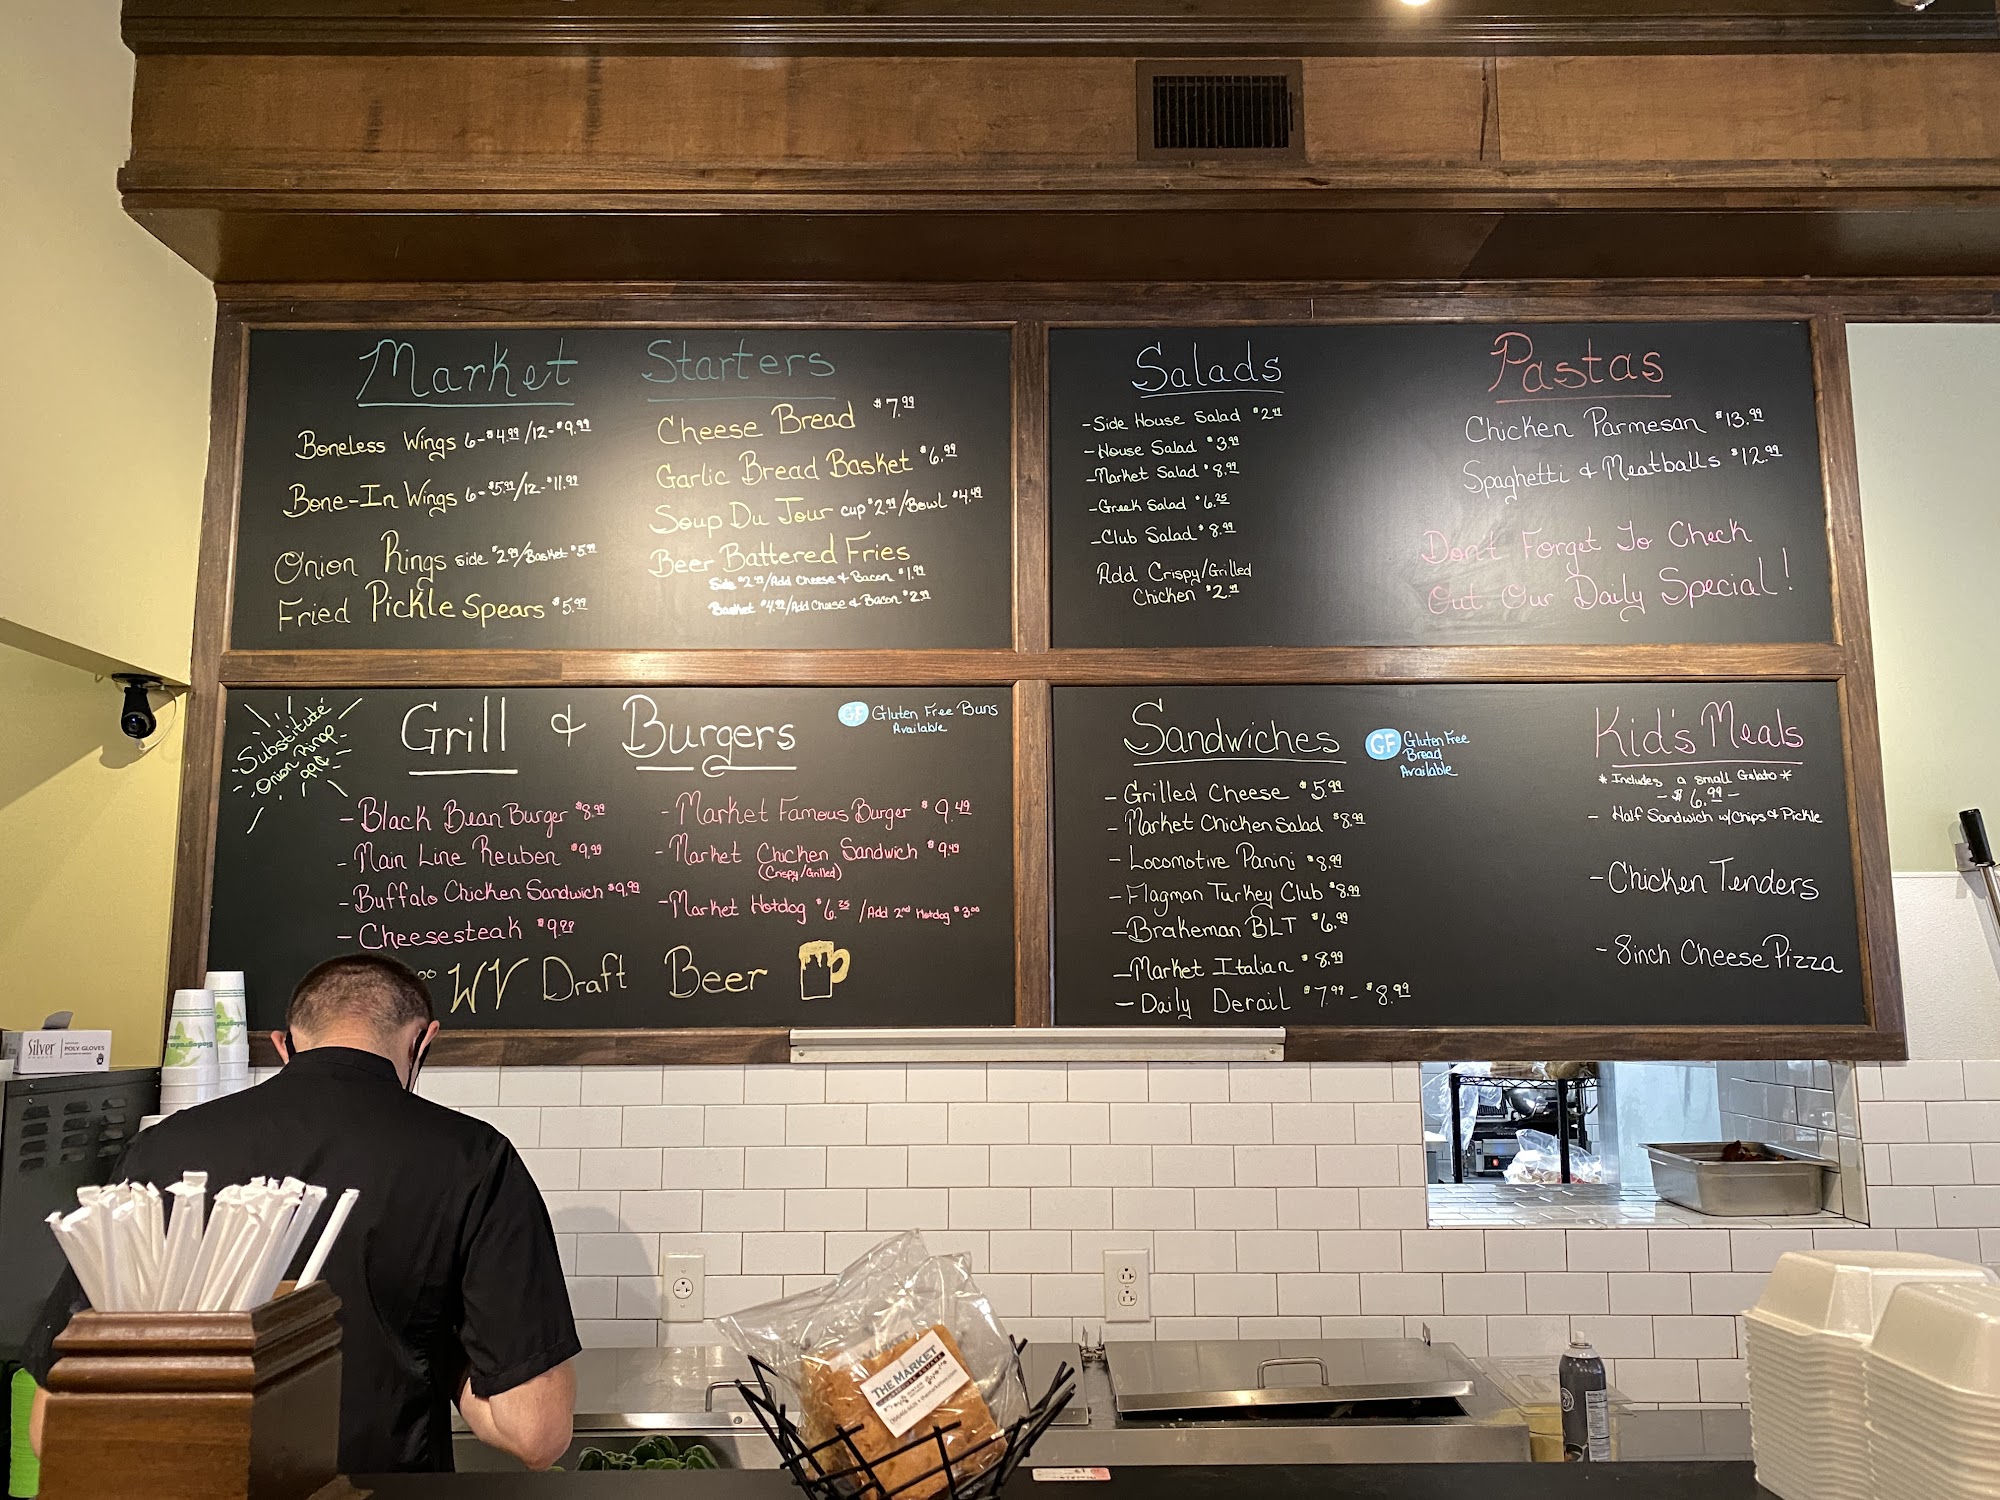 Market Starters
Boneless Wings 6-$4.99/12-$9.99
Bone-In Wings 6-$5.99/12-$11.99
Onion Rings side $2.99/Basket $5.99
Fried Pickle Spears $5.99
Cheese Bread $7.99
Garlic Bread Basket $6.99
Soup Du Jour cup $2.99/Bowl $4.49
Beer Battered Fries
Side $2.49/Add Cheese & Bacon $1.99
Basket $4.99/Add Cheese & Bacon $2.99
Salads
-Side House Salad $2.99
-House Salad $3.99
-Market Salad $8.99
-Greek Salad $6.25
-Club Salad $8.99
Add Crispy/Grilled
Chicken $2.99
Pastas
Chicken Parmesan $13.99
Spaghetti & Meatballs $12.99
Don't Forget To Check
Out Our Daily Special!
Substitute
Onion Rings
99¢
Grill & Burgers
GF Gluten Free Buns
Available
-Black Bean Burger $8.99
-Main Line Reuben $9.99
-Buffalo Chicken Sandwich $9.99
-Cheesesteak $9.99
-Market Famous Burger $9.49
-Market Chicken Sandwich $9.49
(Crispy/Grilled)
-Market Hotdog $6.25/Add 2nd Hotdog $3.00
WV Draft Beer
Sandwiches
GF Gluten Free
Bread
Available
-Grilled Cheese $5.99
-Market Chicken Salad $8.99
-Locomotive Panini $8.99
-Flagman Turkey Club $8.99
-Brakeman BLT $6.99
-Market Italian $8.99
-Daily Derail $7.99-$8.99
Kid's Meals
*Includes a small Gelato*
-$6.99-
-Half Sandwich w/Chips & Pickle
-Chicken Tenders
-8inch Cheese Pizza
Silver
POLY GLOVES
THE MARKET